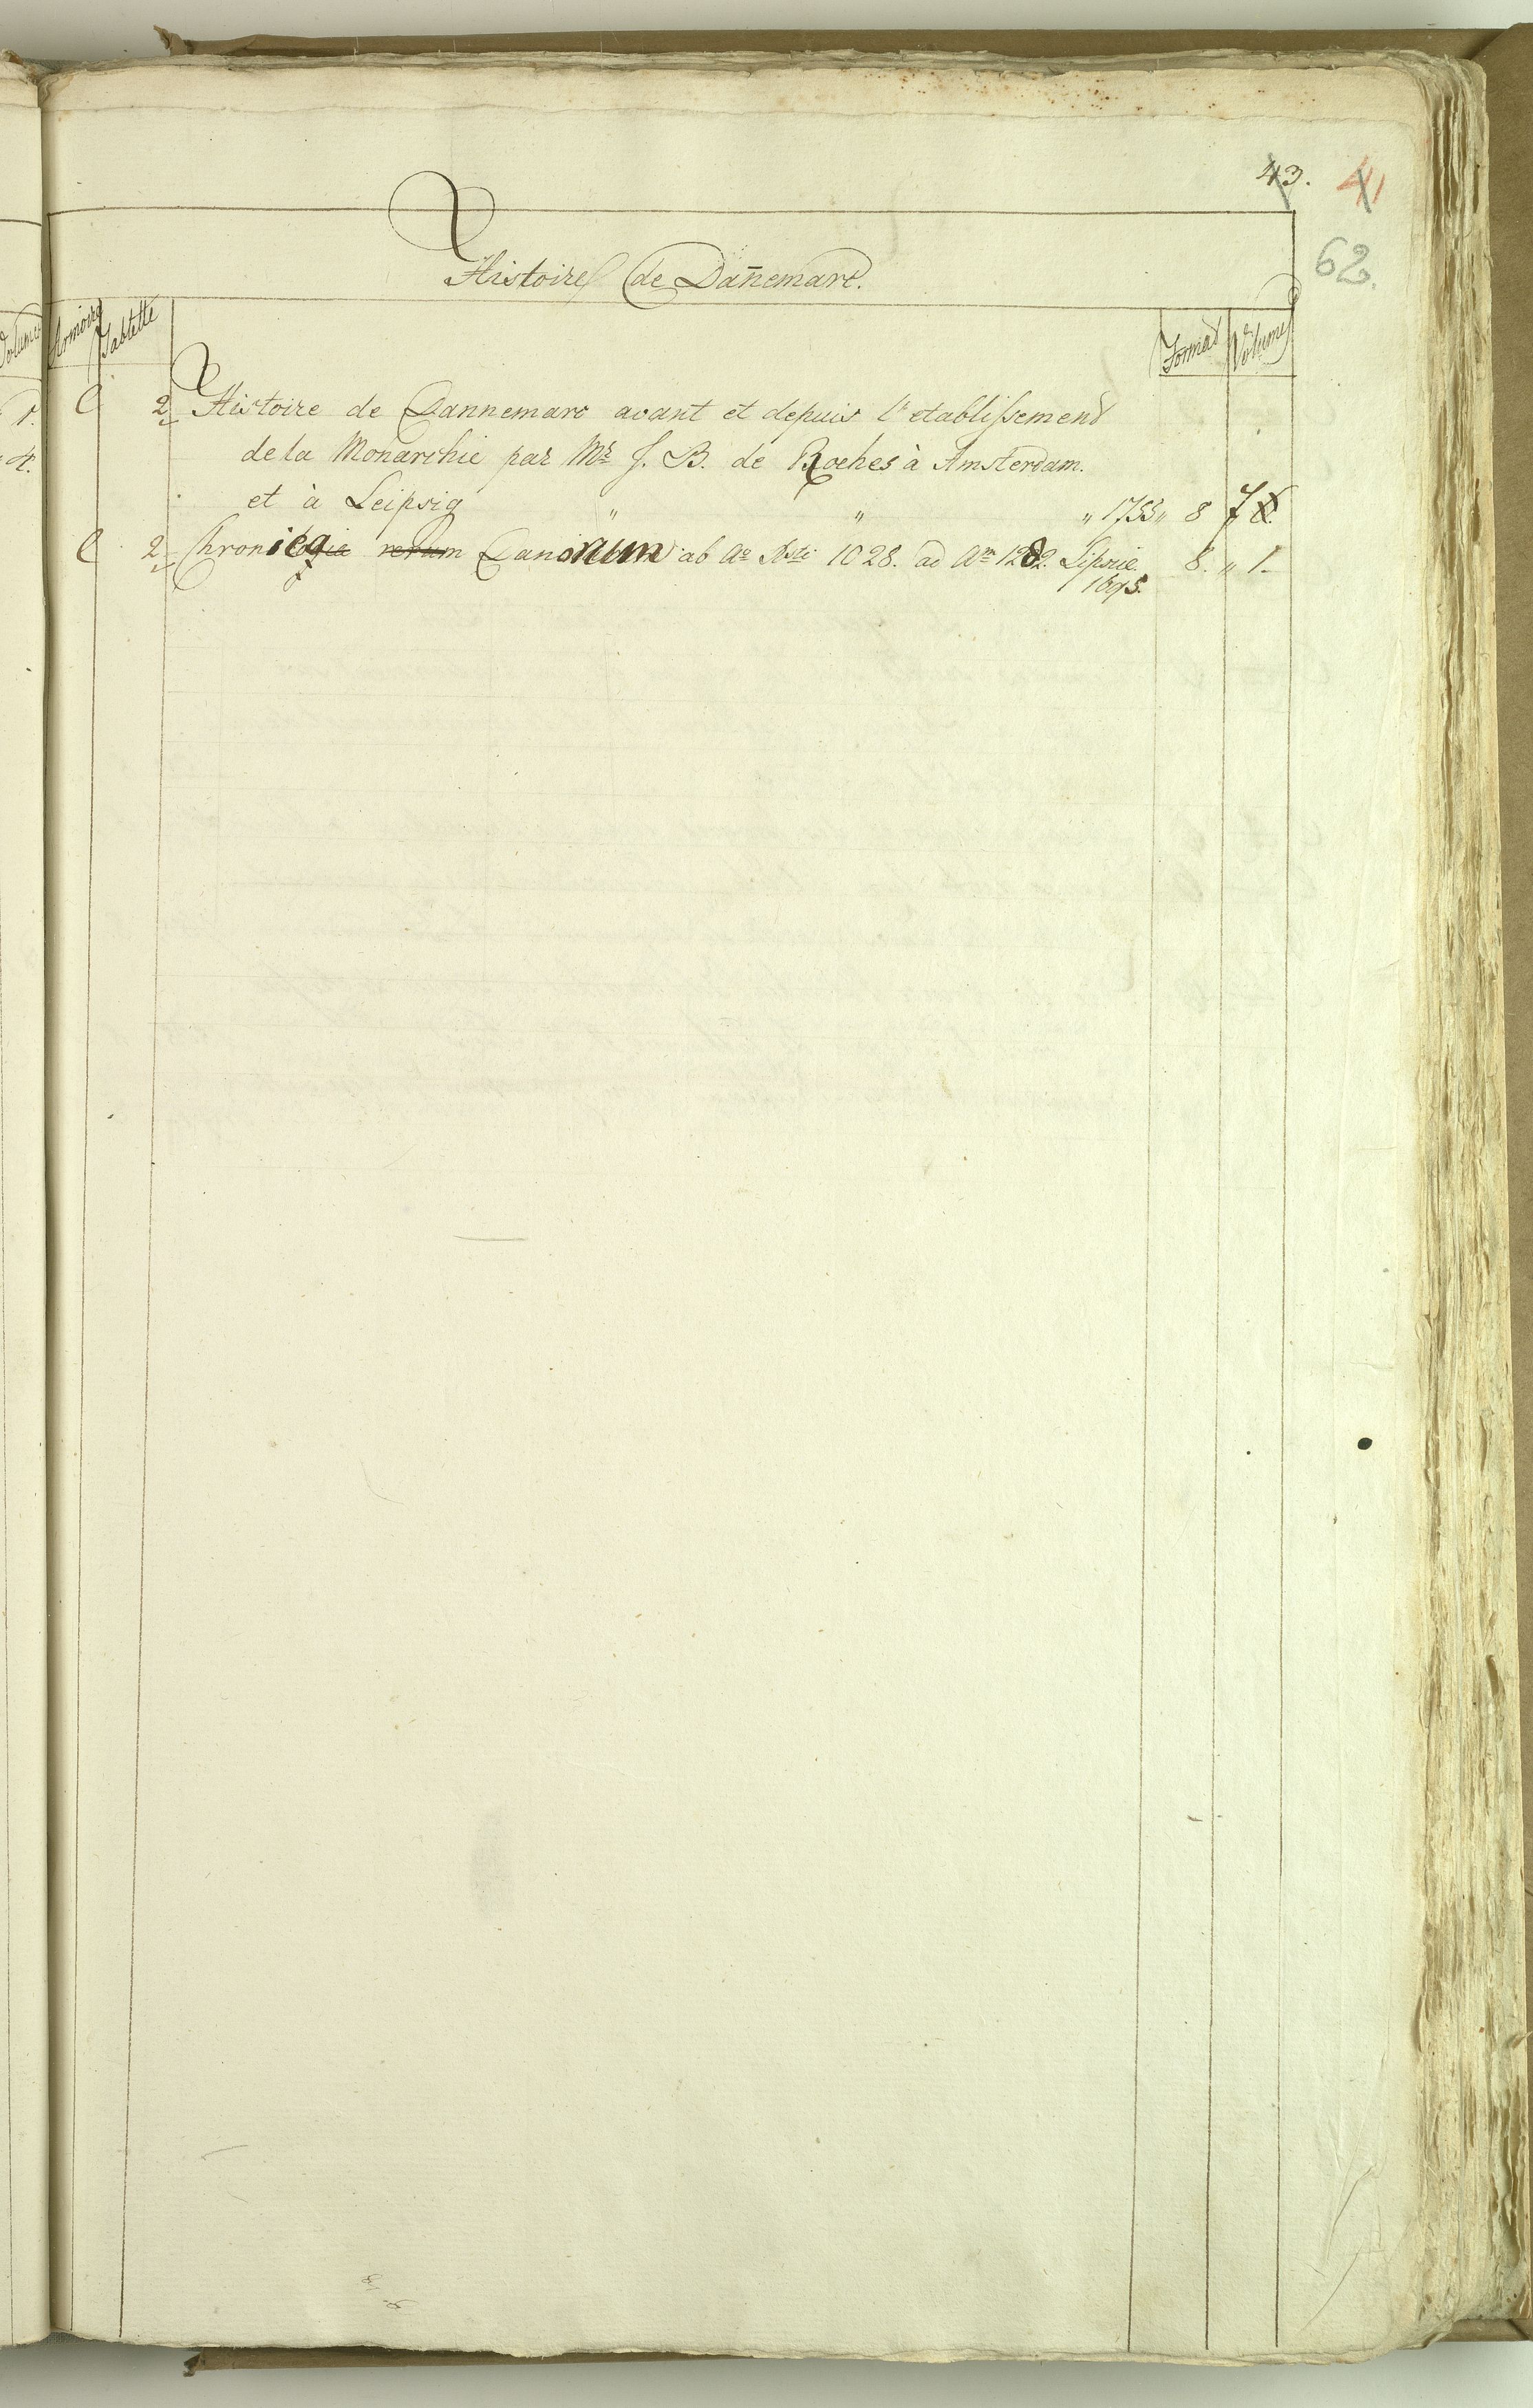 43. 41
62.
Histoires de Dan̄emarc.
Armoire Tablette Format Volumes
C 2 Histoire de Dannemarc avant et depuis l'etablissement
de la Monarchie par Mr J. B. de Roches à Amsterdam.
et à Leipsig " " " 1755 " 8 7
C 2 Chronica rerum Danorum ab Ao 1028. ad Am 1282. Lipsiae. 8. " 1.
1695.